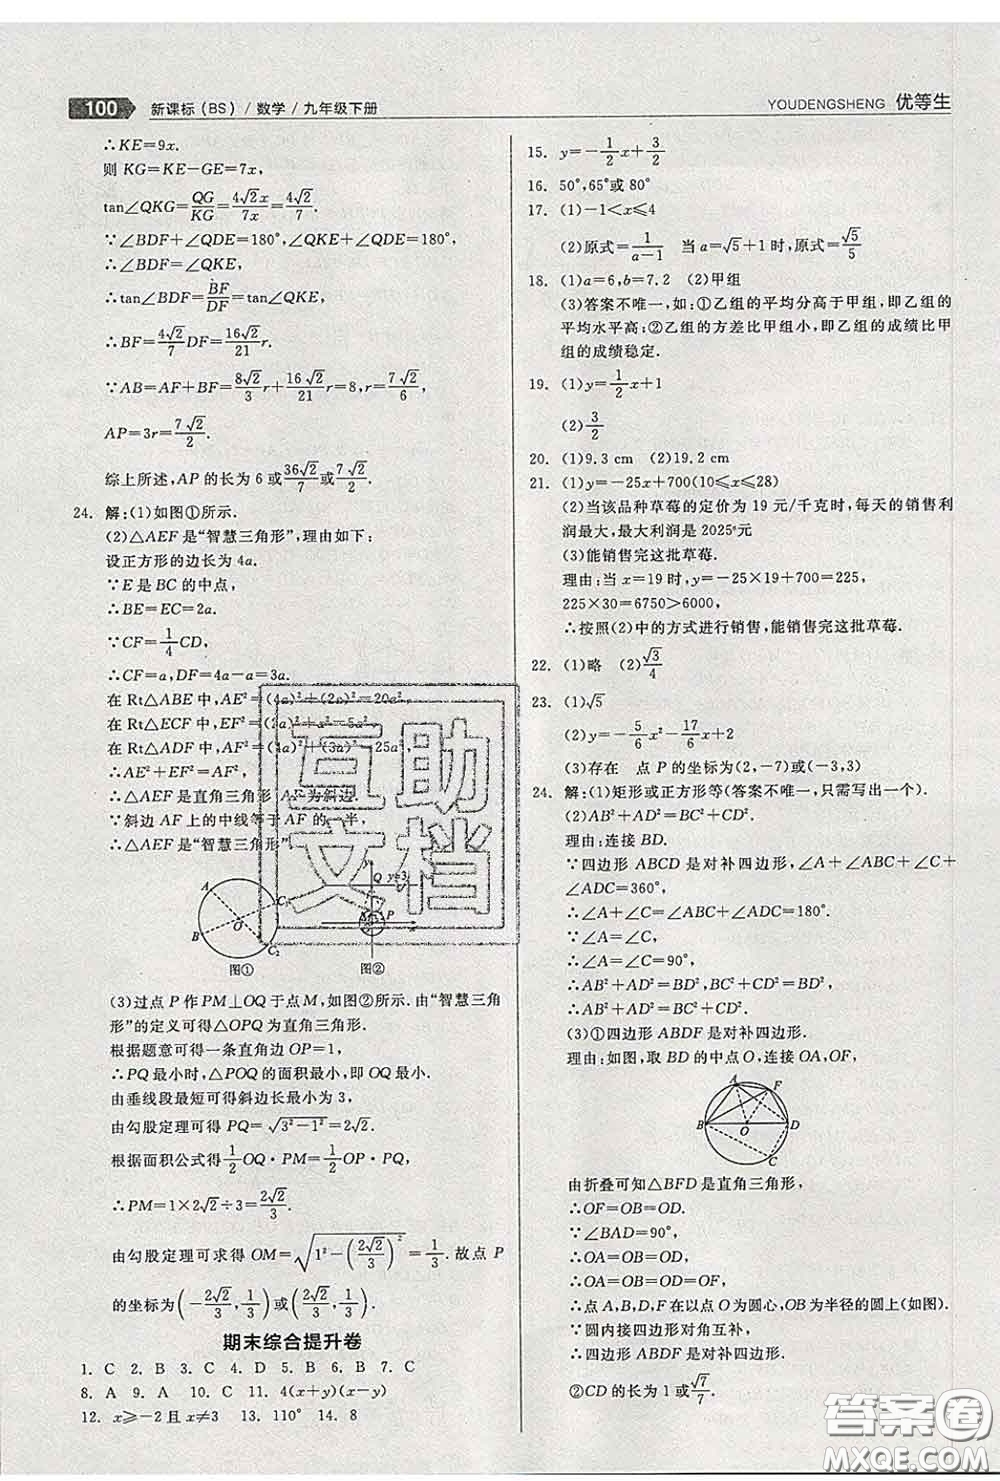 100 新课标(BS)/数学/九年级下册
YOUDENGSHENG 优等生
∴KE=9x.
则 KG=KE-GE=7x,
tan∠QKG=QG/KG=4√2x/7x=4√2/7.
∵∠BDF+∠QDE=180°,∠QKE+∠QDE=180°,
∴∠BDF=∠QKE,
∴tan∠BDF=BF/DF=tan∠QKE,
∴BF=4√2/7DF=16√2/21r.
∵AB=AF+BF=8√2/3r+16√2/21r=8,r=7√2/6,
AP=3r=7√2/2.
综上所述,AP的长为6或36√2/7或7√2/2.
24. 解:(1)如图①所示.
(2)△AEF是“智慧三角形”,理由如下:
设正方形的边长为4a.
∵E是BC的中点,
∴BE=EC=2a.
∵CF=1/4CD,
∴CF=a,DF=4a-a=3a.
在Rt△ABE中,AE²=(4a)²+(2a)²=20a².
在Rt△ECF中,EF²=(2a)²+a²=5a².
在Rt△ADF中,AF²=(4a)²+(3a)²=25a².
∴AE²+EF²=AF²,
∴△AEF是直角三角形,AF为斜边.
∵斜边AF上的中线等于AF的一半,
∴△AEF是“智慧三角形”.
A C₁ B O C₂ 图①
Q y=3 P 图②
(3)过点P作PM⊥OQ于点M,如图②所示.由“智慧三角
形”的定义可得△OPQ为直角三角形.
根据题意可得一条直角边OP=1,
∴PQ最小时,△POQ的面积最小,即OQ最小.
由垂线段最短可得斜边长最小为3,
由勾股定理可得PQ=√(3²-1²)=2√2.
根据面积公式得1/2OQ·PM=1/2OP·PQ,
∴PM=1×2√2÷3=2√2/3.
由勾股定理可求得OM=√(1²-(2√2/3)²)=1/3.故点P
的坐标为(-2√2/3,1/3)或(2√2/3,1/3).
期末综合提升卷
1. C 2. B 3. C 4. D 5. B 6. B 7. C
8. A 9. A 10. C 11. 4(x+y)(x-y)
12. x≥-2且x≠3 13. 110° 14. 8
15. y=-1/2x+3/2
16. 50°,65°或80°
17. (1)-1<x≤4
(2)原式=1/(a-1) 当a=√5+1时,原式=√5/5
18. (1)a=6,b=7.2 (2)甲组
(3)答案不唯一,如:①乙组的平均分高于甲组,即乙组的
平均水平高;②乙组的方差比甲组小,即乙组的成绩比甲
组的成绩稳定.
19. (1)y=1/2x+1
(2)3/2
20. (1)9.3 cm (2)19.2 cm
21. (1)y=-25x+700(10≤x≤28)
(2)当该品种草莓的定价为19元/千克时,每天的销售利
润最大,最大利润是2025元
(3)能销售完这批草莓.
理由:当x=19时,y=-25×19+700=225,
225×30=6750>6000,
∴按照(2)中的方式进行销售,能销售完这批草莓.
22. (1)略 (2)√3/4
23. (1)√5
(2)y=-5/6x²-17/6x+2
(3)存在 点P的坐标为(2,-7)或(-3,3)
24. 解:(1)矩形或正方形等(答案不唯一,只需写出一个).
(2)AB²+AD²=BC²+CD².
理由:连接BD.
∵四边形ABCD是对补四边形,∠A+∠ABC+∠C+
∠ADC=360°,
∴∠A+∠C=∠ABC+∠ADC=180°.
∵∠A=90°,
∴∠A=∠C=90°,
∴AB²+AD²=BD²,BC²+CD²=BD²,
∴AB²+AD²=BC²+CD².
(3)①四边形ABDF是对补四边形.
理由:如图,取BD的中点O,连接OA,OF,
A F B O D C
由折叠可知△BFD是直角三角形,
∴OF=OB=OD.
∵∠BAD=90°,
∴OA=OB=OD,
∴OA=OB=OD=OF,
∴点A,B,D,F在以点O为圆心,OB为半径的圆上(如图).
∵圆内接四边形对角互补,
∴四边形ABDF是对补四边形.
②CD的长为1或√7/7.
互助
文档
答案圈
MXQE.COM